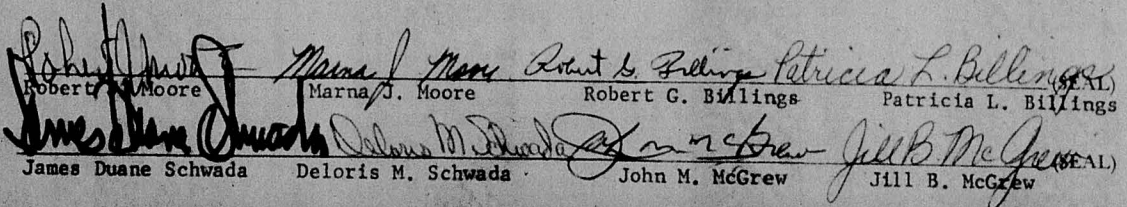 Marna J. Moore Robert G. Billings Patricia L. Billings (SEAL)
Robert Moore Marna J. Moore Robert G. Billings Patricia L. Billings
James Duane Schwada Deloris M. Schwada John M. McGrew Jill B. McGrew (SEAL)
James Duane Schwada Deloris M. Schwada John M. McGrew Jill B. McGrew